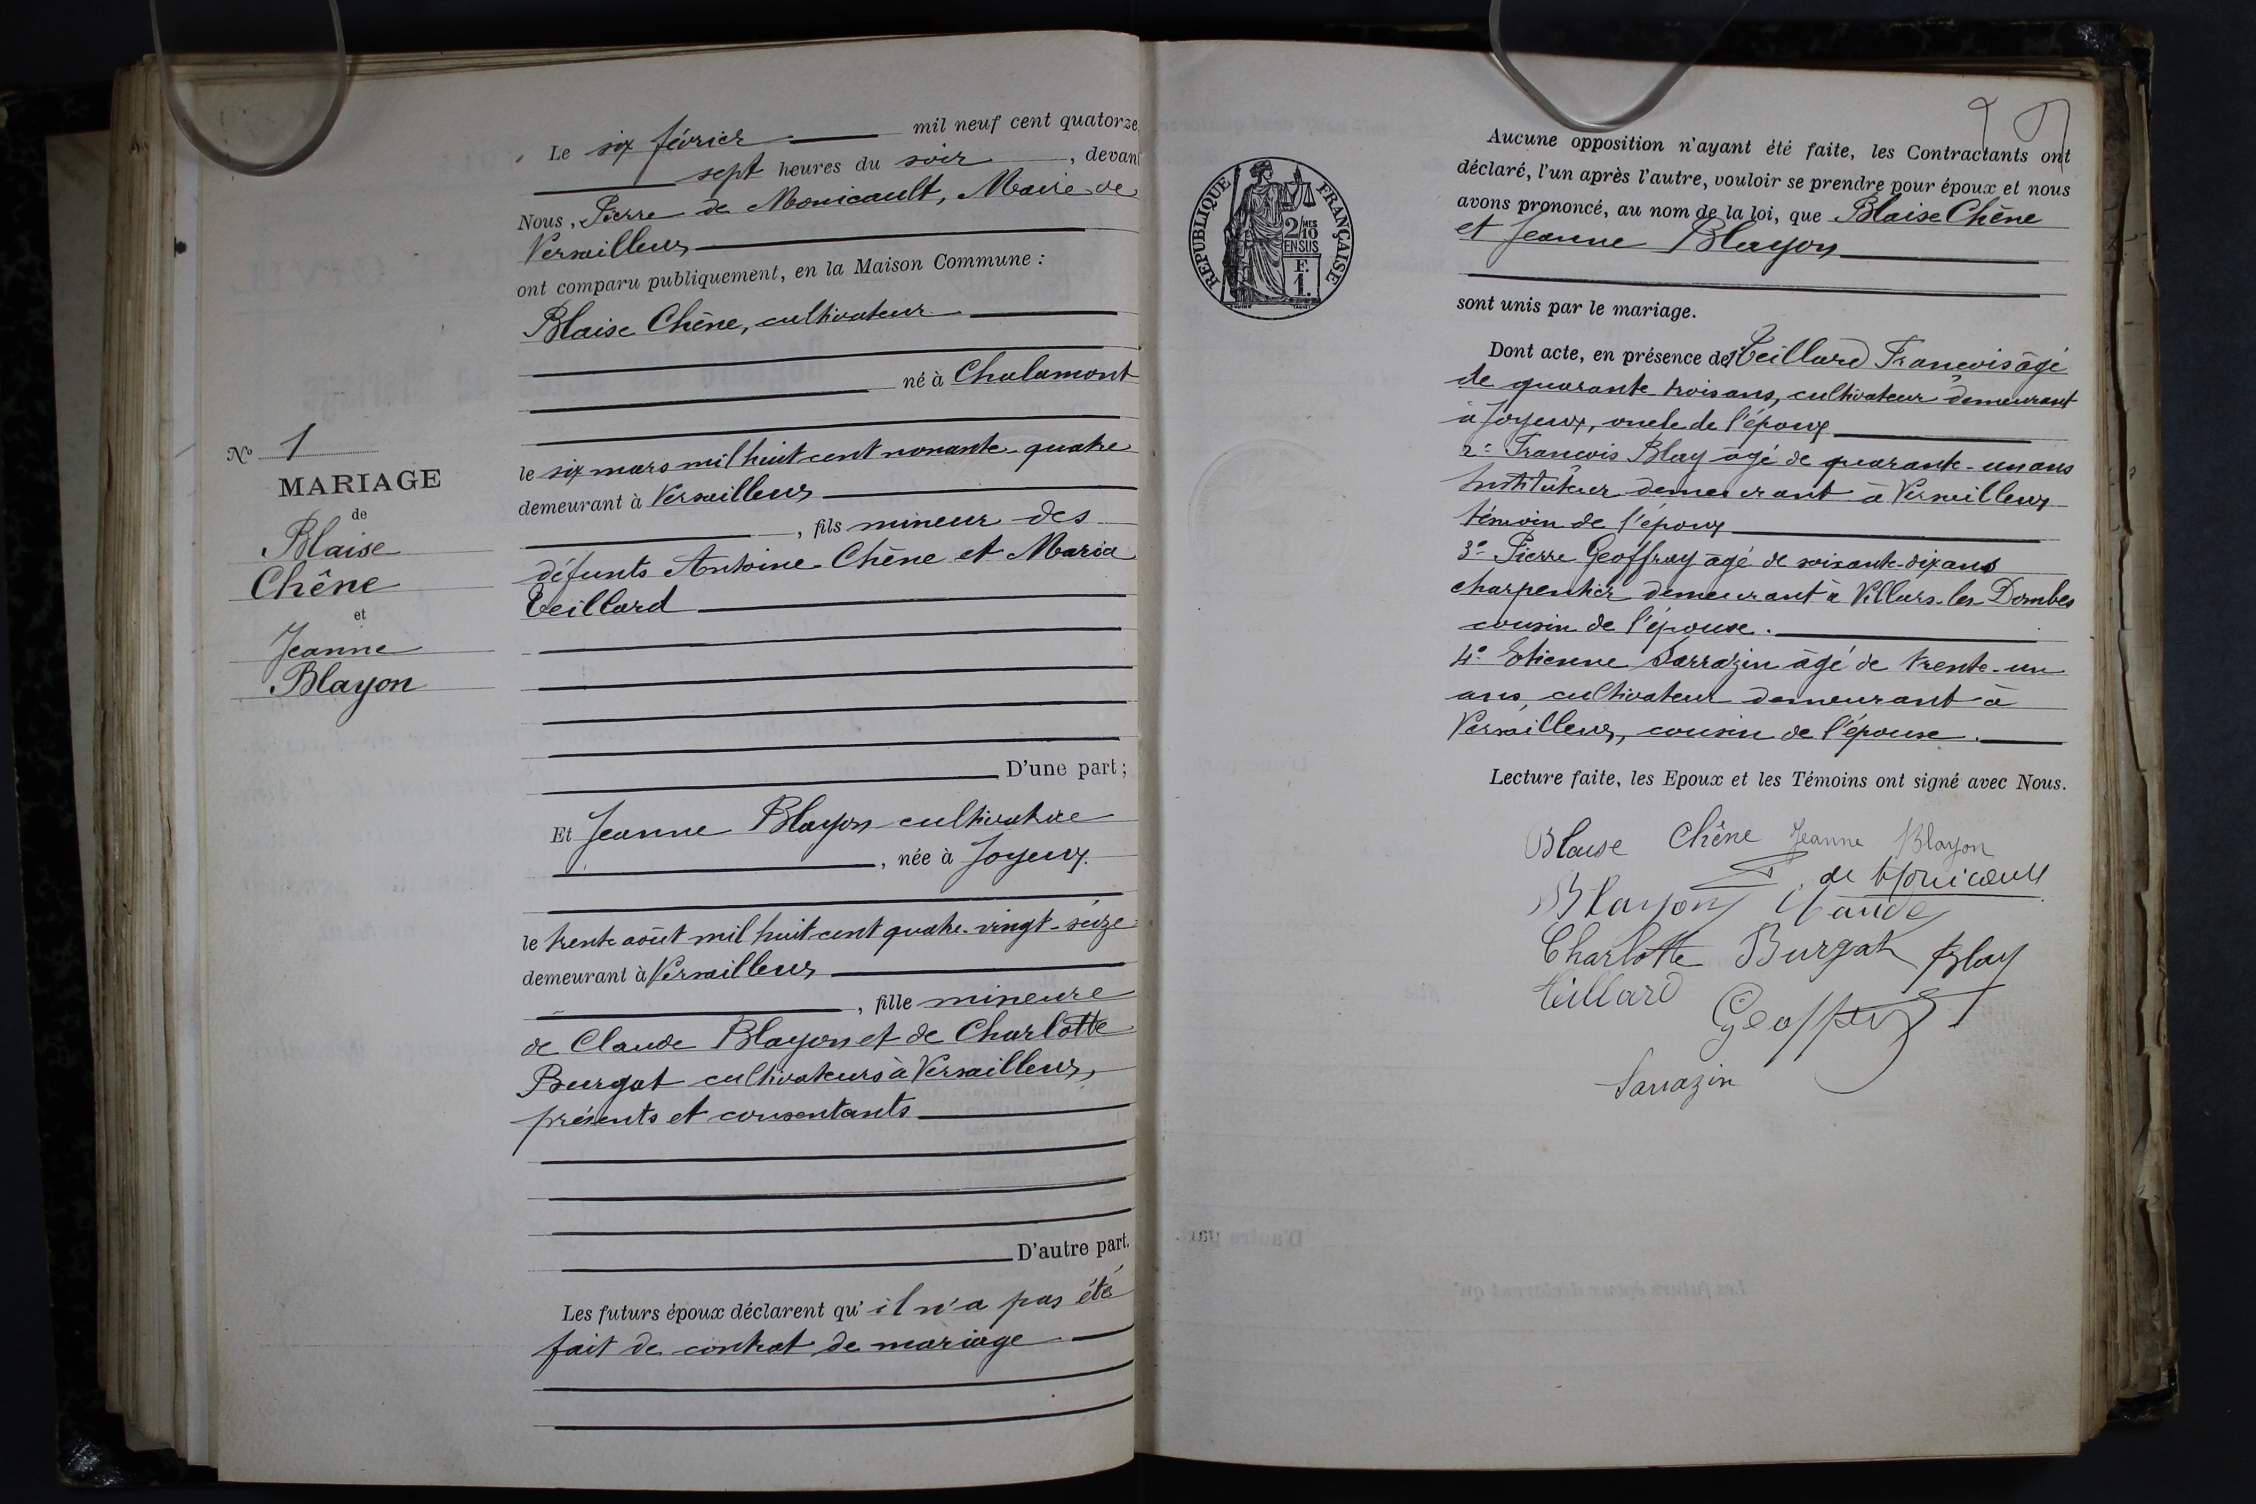 Le six février mil neuf cent quatorze
sept heures du soir, devant
Nous, Pierre de Monicault, Maire de
Versailleux
ont comparu publiquement, en la Maison Commune :
Blaise Chêne, cultivateur
né à Chalamont
le six mars mil huit cent nonante-quatre
demeurant à Versailleux
, fils mineur des
défunts Antoine Chêne et Maria
Teillard
D'une part ;
Et Jeanne Blayon cultivatrice
, née à Joyeux.
le trente août mil huit cent quatre-vingt-seize
demeurant à Versailleux
, fille mineure
de Claude Blayon et de Charlotte
Burgat cultivateurs à Versailleux,
présents et consentants
D'autre part.
Les futurs époux déclarent qu'il n'a pas été
fait de contrat de mariage
N° 1
MARIAGE
de
Blaise
Chêne
et
Jeanne
Blayon
RÉPUBLIQUE FRANÇAISE
2/10 MES
EN SUS
F.
1.
Aucune opposition n'ayant été faite, les Contractants ont
déclaré, l'un après l'autre, vouloir se prendre pour époux et nous
avons prononcé, au nom de la loi, que Blaise Chêne
et Jeanne Blayon
sont unis par le mariage.
Dont acte, en présence de Teillard François âgé
de quarante trois ans, cultivateur demeurant
à Joyeux, oncle de l'époux
2° François Blay âgé de quarante-un ans
Instituteur demeurant à Versailleux
témoin de l'époux
3° Pierre Geoffray âgé de soixante-dix ans
charpentier demeurant à Villars-les-Dombes
cousin de l'épouse.
4° Etienne Sarrazin âgé de trente-un
ans, cultivateur demeurant à
Versailleux, cousin de l'épouse.
Lecture faite, les Epoux et les Témoins ont signé avec Nous.
Blaise Chêne Jeanne Blayon
P. de Monicault
Blayon Claude
Charlotte Burgat Blay
Teillard Geoffray
Sarrazin